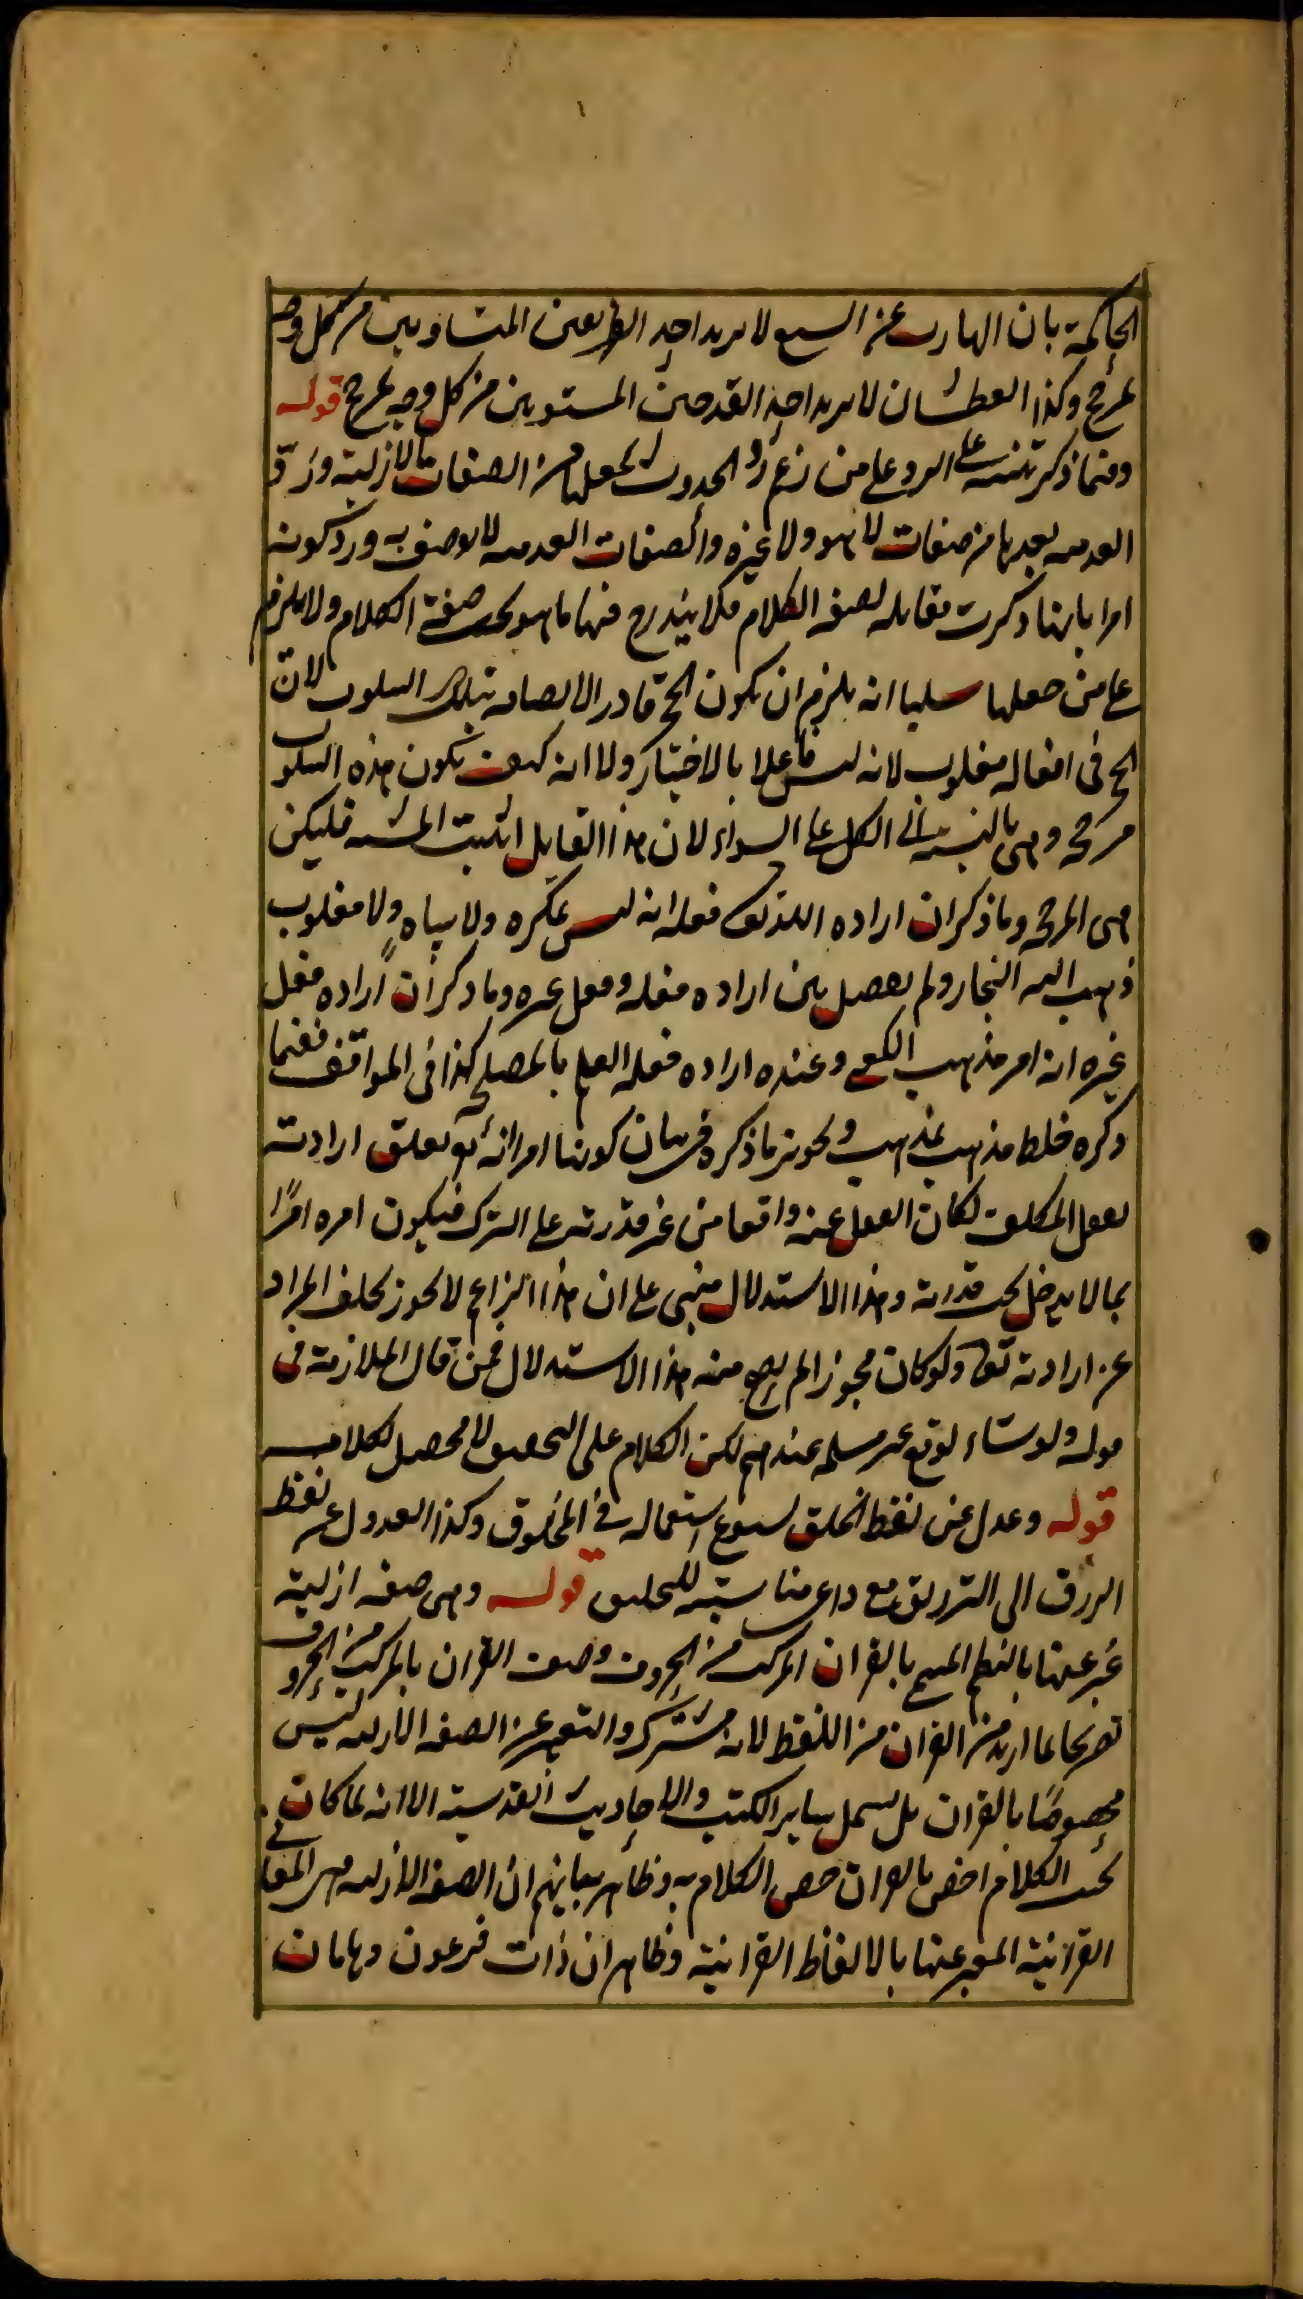 الحاكمة بان الهارب عن السبع لا يريد احد الطريقين المتساويين من كل وجه
لمرجح وكذا العطشان لا يريد احد القدحين المستويين من كل وجه لمرجح قوله
وفيما ذكر تنبيه على الرد على من زعم رد الحدوث لجعلها من الصفات الازلية ورد
العدمية بعدها من صفات لا هو ولا غيره والصفات العدمية لا يوصف به ورد كونه
امرا بانها ذكرت مقابلة لصفة الكلام فلا يندرج فيها ما هو تحت صفة الكلام ولا يلزم
على من جعلها سلبا انه يلزم ان يكون الحجر قادرا لاتصافه بتلك السلوب لان
الحجر في افعاله مغلوب لانه ليس فاعلا بالاختيار ولا انه كيف يكون هذه السلوب
مرجحة وهي بالنسبة الى الكل على السواء لان هذا القايل اثبت المشية فليكن
هي المرجحة وما ذكر ان ارادة الله تعالى فعله انه ليس بمكره ولا بساه ولا مغلوب
ذهب اليه النجار ولم يفصل بين ارادة فعله وفعل غيره وما ذكر ان ارادة فعل
غيره انه امر مذهب الكعبي وعنده ارادة فعله العلم بالمصلحة كذا في المواقف ففيما
ذكره خلط مذهب بمذهب وتحرير ما ذكره في بيان كونها امرا انه لو تعلق ارادته
بفعل المكلف لكان الفعل عنه واقعا من غير قدرته على الترك فيكون امره امرا
بما لا يدخل تحت قدرته وهذا الاستدلال مبني على ان هذا الزاعم لا يجوز تخلف المراد
عن ارادته تعالى ولو كان مجوزا لم يصح منه هذا الاستدلال فمن قال الملازمة في
قوله ولو شاء لوقع غير مسلمة عندهم لكن الكلام على التحقيق لا محصل لكلامه
قوله وعدل عن لفظ الخلق لشيوع استعماله في المخلوق وكذا العدول عن لفظ
الرزق الى الترزيق مع داعي مناسبته للتخليق قوله وهي صفة ازلية
عبر عنها بالنظم المسمى بالقرآن المركب من الحروف وصف القرآن بالمركب من الحروف
تصريحا لما اريد من القرآن من اللفظ لانه مشترك والتعبير عن الصفة الازلية ليس
مخصوصا بالقرآن بل يشمل ساير الكتب والاحاديث القدسية الا انه لما كان
تحت الكلام اخص بالقرآن خص الكلام به وظاهر بيانهم ان الصفة الازلية هي المعاني
القرآنية المعبر عنها بالالفاظ القرآنية وظاهر ان ذات فرعون وهامان